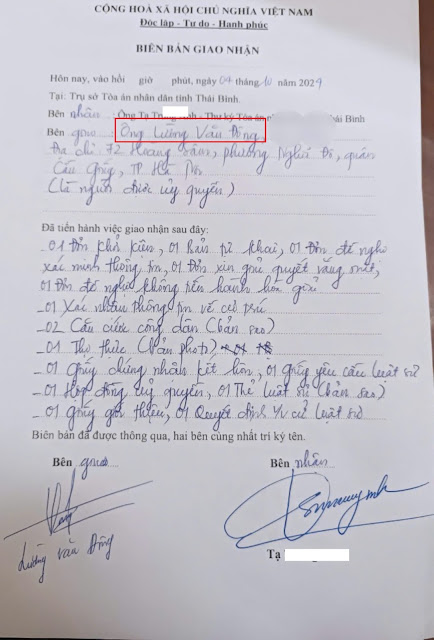 CỘNG HOÀ XÃ HỘI CHỦ NGHĨA VIỆT NAM
Độc lập - Tự do - Hạnh phúc
BIÊN BẢN GIAO NHẬN
Hôm nay, vào hồi giờ phút, ngày 04 tháng 10 năm 2024
Tại: Trụ sở Tòa án nhân dân tỉnh Thái Bình.
Bên nhận : Ông Tạ - Thư ký Tòa án Thái Bình
Bên giao : Ông Lường Văn Đông
Địa chỉ: 72 Hoàng Sâm, phường Nghĩa Đô, quận
Cầu Giấy, TP Hà Nội
(là người được uỷ quyền)
Đã tiến hành việc giao nhận sau đây:
- 01 Đơn khởi kiện, 01 bản tự khai, 01 Đơn đề nghị
xác minh thông tin, 01 Đơn xin giải quyết vắng mặt,
01 Đơn đề nghị không tiến hành hoà giải
- 01 Xác nhận thông tin về cư trú
- 02 Căn cước công dân (bản sao)
- 01 Thị thực (bản photo)
- 01 Giấy chứng nhận kết hôn, 01 giấy yêu cầu luật sư
- 01 Hợp đồng uỷ quyền, 01 Thẻ luật sư (bản sao)
- 01 giấy giới thiệu, 01 Quyết định v/v cử luật sư
Biên bản đã được thông qua, hai bên cùng nhất trí ký tên.
Bên giao
Bên nhận
Lường Văn Đông
Tạ